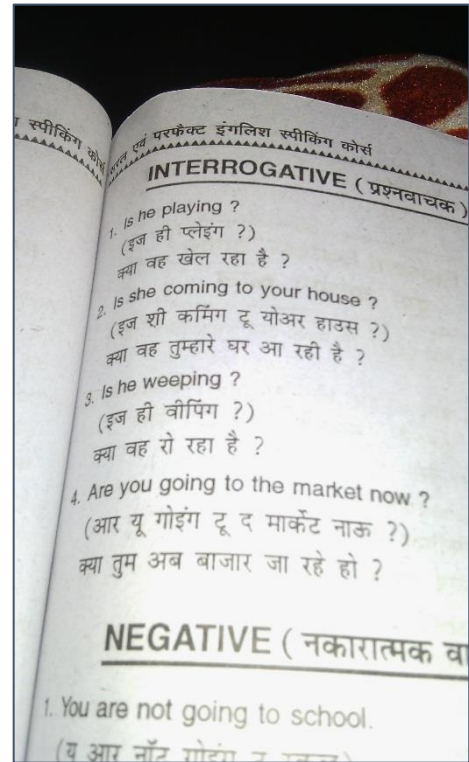 स्पीकिंग कोर्स
सरल एवं परफैक्ट इंगलिश स्पीकिंग कोर्स
INTERROGATIVE ( प्रश्नवाचक )
1. Is he playing ?
(इज ही प्लेइंग ?)
क्या वह खेल रहा है ?
2. Is she coming to your house ?
(इज शी कमिंग टू योअर हाउस ?)
क्या वह तुम्हारे घर आ रही है ?
3. Is he weeping ?
(इज ही वीपिंग ?)
क्या वह रो रहा है ?
4. Are you going to the market now ?
(आर यू गोइंग टू द मार्केट नाऊ ?)
क्या तुम अब बाजार जा रहे हो ?
NEGATIVE ( नकारात्मक
1. You are not going to school.
(यू आर नॉट गोइंग टू स्कूल)